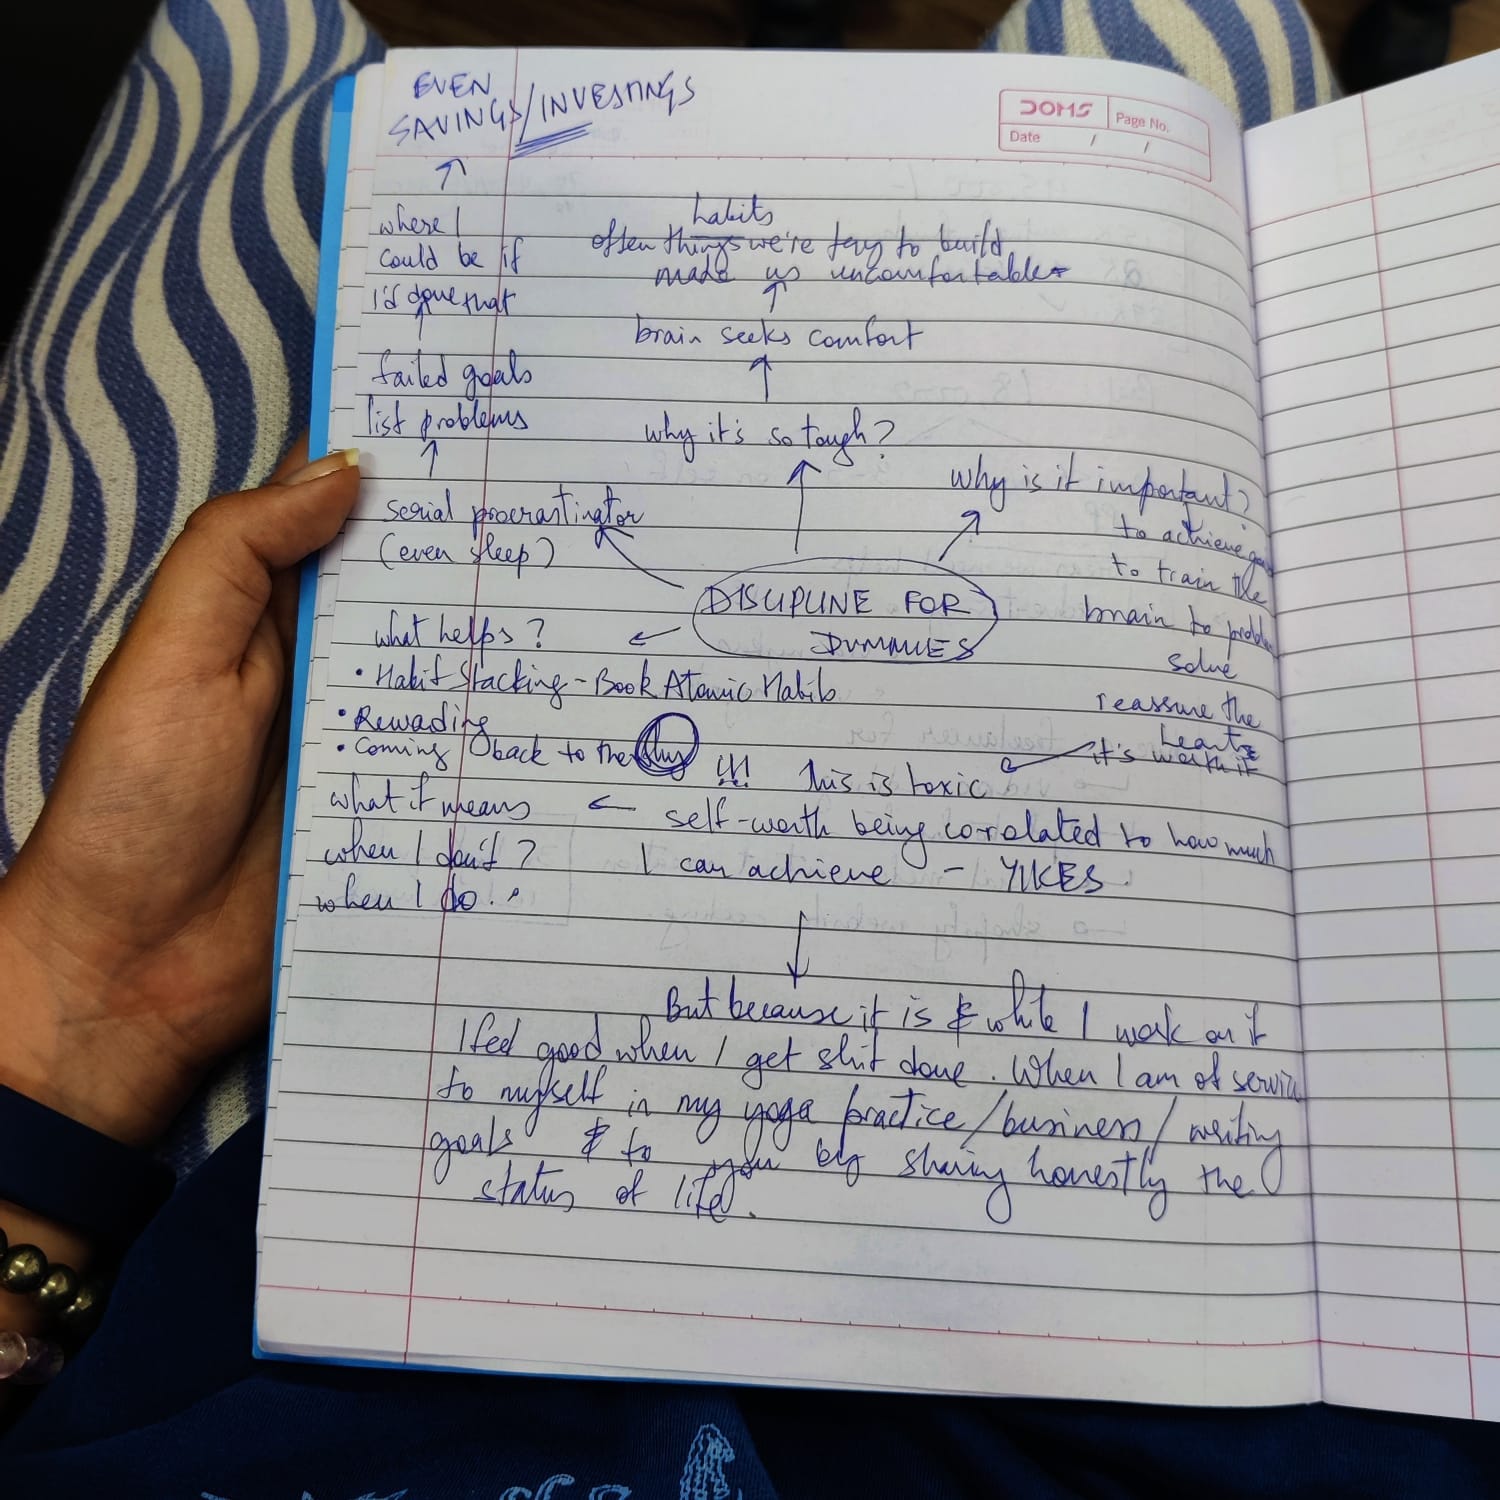 EVEN
SAVINGS/INVESTINGS
DOMS
Page No.
Date / /
where I
could be if
I'd done that
failed goals
list problems
serial procrastinator
(even sleep)
habits
often things we're try to build
made us uncomfortable
brain seeks comfort
why it's so tough?
why is it important?
to achieve
to train the
brain to
solve
reassure the
heart
it's worth it
DISCIPLINE FOR
DUMMIES
what helps?
• Habit Stacking - Book Atomic Habits
• Rewarding
• Coming back to the why !!!
This is toxic
self-worth being corolated to how much
I can achieve - YIKES.
what it means
when I don't?
when I do.
But because it is & while I work on it
I feel good when I get shit done. When I am of service
to myself in my yoga practice/business/writing
goals & to you by sharing honestly the
status of life.